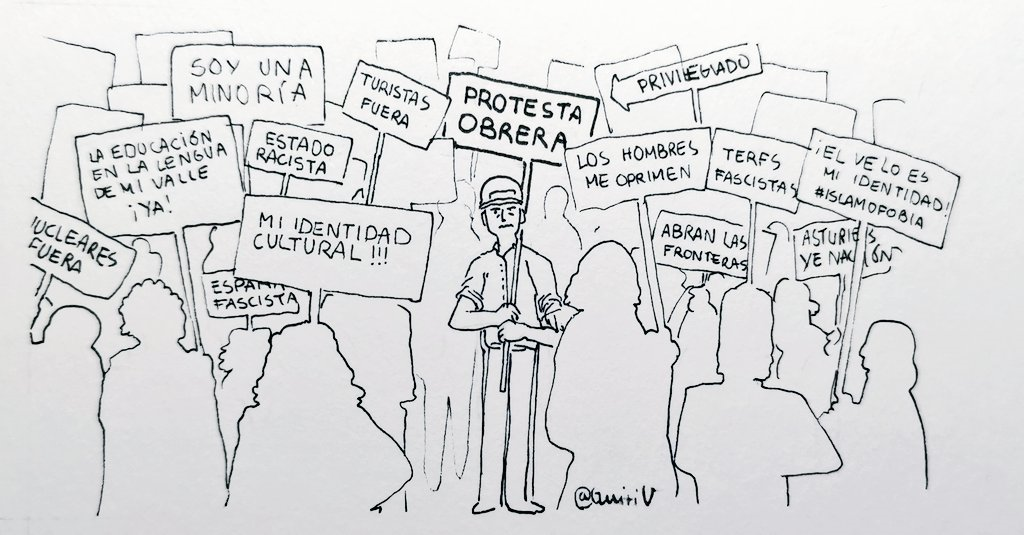 SOY UNA
MINORÍA
TURISTAS
FUERA
PROTESTA
OBRERA
PRIVILEGIADO
LA EDUCACIÓN
EN LA LENGUA
DE MI VALLE
¡YA!
ESTADO
RACISTA
LOS HOMBRES
ME OPRIMEN
TERFS
FASCISTAS
¡EL VELO ES
MI IDENTIDAD!
#ISLAMOFOBIA
NUCLEARES
FUERA
MI IDENTIDAD
CULTURAL!!!
ABRAN LAS
FRONTERAS
ASTURIES
YE NACIÓN
ESPAÑA
FASCISTA